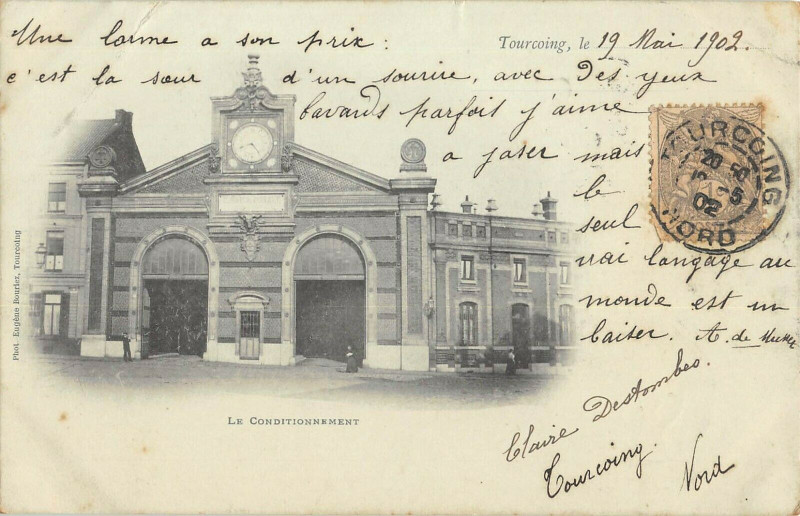 Tourcoing, le 19 Mai 1902.
Une larme a son prix :
c'est la sœur d'un sourire, avec des yeux
bavards parfois j'aime
a jaser mais
le
seul
vrai langage au
monde est un
baiser. A. de Musset
Claire Destombes.
Tourcoing.
Nord
TOURCOING
02
NORD
Phot. Eugène Bourlet, Tourcoing
LE CONDITIONNEMENT